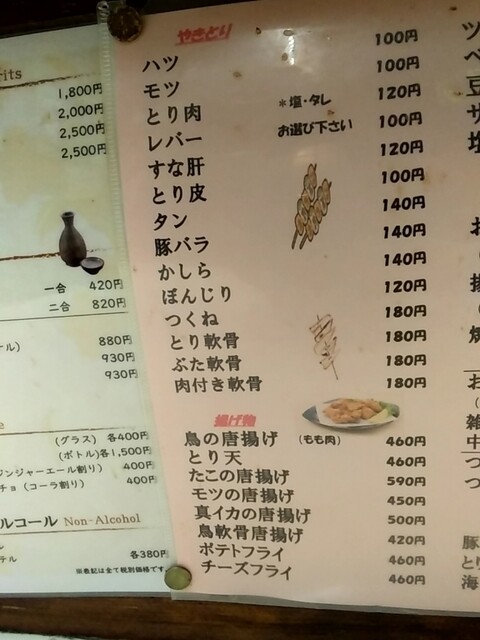 rits
1,800円
2,000円
2,500円
2,500円
一合 420円
二合 820円
880円
ル)
930円
930円
e
(グラス) 各400円
(ボトル) 各1,500円
ンジャーエール割り) 400円
チョ (コーラ割り) 400円
ルコール Non-Alcohol
テル 各380円
※表記は全て税別価格です。
やきとり
ハツ 100円
モツ 100円
とり肉 120円
レバー 100円
すな肝 120円
とり皮 100円
タン 140円
豚バラ 140円
かしら 140円
ぼんじり 120円
つくね 180円
とり軟骨 180円
ぶた軟骨 180円
肉付き軟骨 180円
*塩・タレ
お選び下さい
揚げ物
鳥の唐揚げ (もも肉) 460円
とり天 460円
たこの唐揚げ 590円
モツの唐揚げ 450円
真イカの唐揚げ 500円
鳥軟骨唐揚げ 420円
ポテトフライ 460円
チーズフライ 460円
ツ
ベ
豆
サ
塩
お
揚
焼
お
雑
中
つ
つ
豚
とり
海